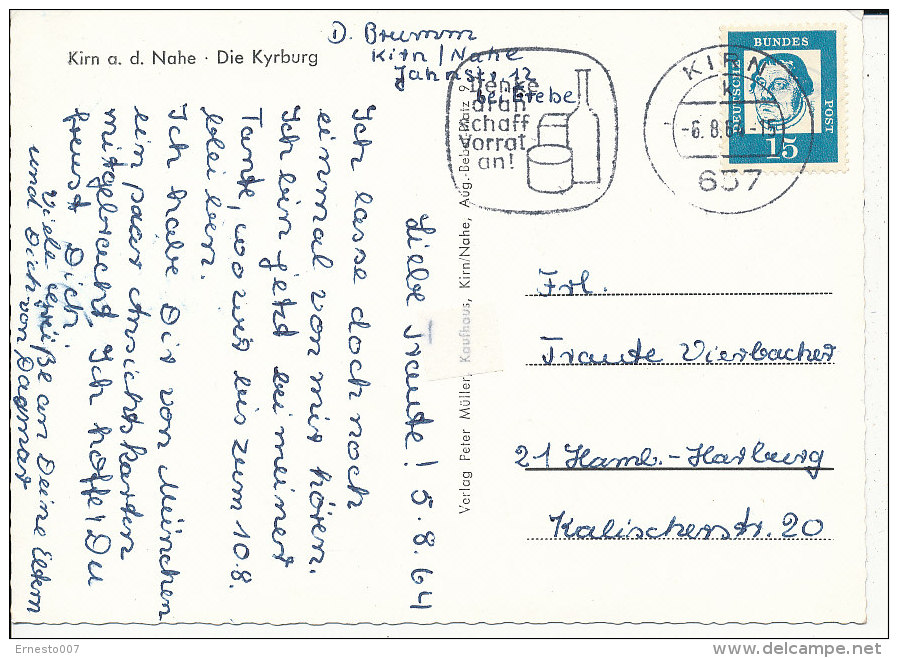 Kirn a. d. Nahe · Die Kyrburg
D. Brumm
Kirn/Nahe
Jahnstr. 12
bei Brebe
Denke
dran
schaff
Vorrat
an!
KIRN
-6.8.64-15
657
BUNDES
DEUTSCHE
POST
15
Liebe Traute! 5.8.64
Ich lasse doch noch
einmal von mir hören.
Ich bin jetzt bei meiner
Tante, wo wir bis zum 10.8.
bleiben.
Ich habe Dir von München
ein paar Ansichtskarten
mitgebracht. Ich hoffe, Du
freust Dich.
Viele Grüße an Deine Eltern
und Dich von Dagmar
Verlag Peter Müller, Kaufhaus, Kirn/Nahe, Aug.-Bebel-Platz
Frl.
Traute Vierbacher
21 Hamb.-Harburg
Kalischerstr. 20
Ernesto007
www.delcampe.net